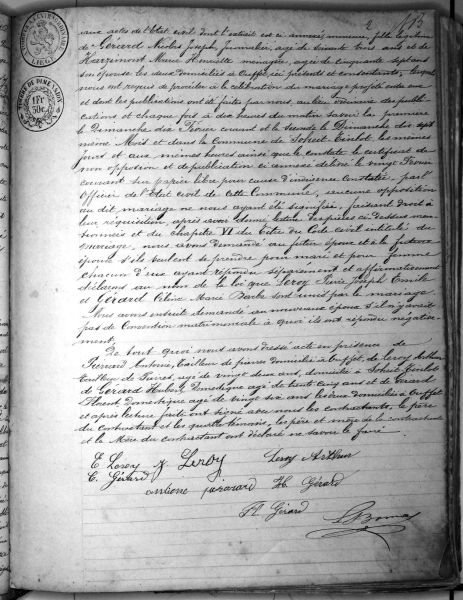 2
aux actes de l'Etat civil dont l'extrait est ci annexé mineure, fille légitime
de Gérard Nicolas Joseph, journalier, agé de soixante trois ans et de
Harzimont Marie Henriette ménagère, agée de cinquante sept ans
son épouse les deux domiciliés à Ouffet, ici présents et consentants, lesquels
nous ont requis de procéder à la célébration du mariage projeté entre eux
et dont les publications ont été faites par nous, au lieu ordinaire des publi-
cations et chaque fois à dix heures du matin savoir la première
le Dimanche dix Février courant et la seconde le Dimanche dix sept
même Mois et dans la Commune de Soheit-Tinlot les mêmes
jours et aux mêmes heures ainsi que le constate le certificat de
non opposition et de publication ci annexé délivré le vingt Février
courant sur papier libre pour cause d'indigence Constatée, par l'
Officier de l'Etat civil de cette Commune, aucune opposition
au dit mariage ne nous ayant été signifiée, faisant droit à
leur réquisition, après avoir donné lecture des pièces ci dessus men-
tionnées et du chapitre VI du titre du Code civil intitulé du
Mariage, nous avons demandé au futur époux et à la future
épouse s'ils veulent se prendre pour mari et pour femme
chacun d'eux ayant répondu séparément et affirmativement
déclarons au nom de la loi que Leroy Joseph Emile
et Gérard Marie Barbe sont unis par le mariage
Nous avons ensuite demandé aux nouveaux époux s'il n'y avait
pas de Convention matrimoniale à quoi ils ont répondu négative-
ment.
De tout quoi nous avons dressé acte en présence de
Antoine, Tailleur de pierres domicilié à Ouffet, de Leroy Arthur
tailleur de Pierres, agé de vingt deux ans, domicilié à Soheit-Tinlot
de Gérard Hubert, Domestique agé de trente cinq ans et de Gérard
Florent domestique agé de vingt six ans les deux domiciliés à Ouffet
et après lecture faite ont signé avec nous les contractants, le père
du contractant et les quatre témoins, les père et mère de la contractante
et la Mère du contractant ont déclaré ne savoir le faire.
E Leroy J. Leroy Leroy Arthur
C. Gérard
Antoine H. Gérard
Fl. Gérard